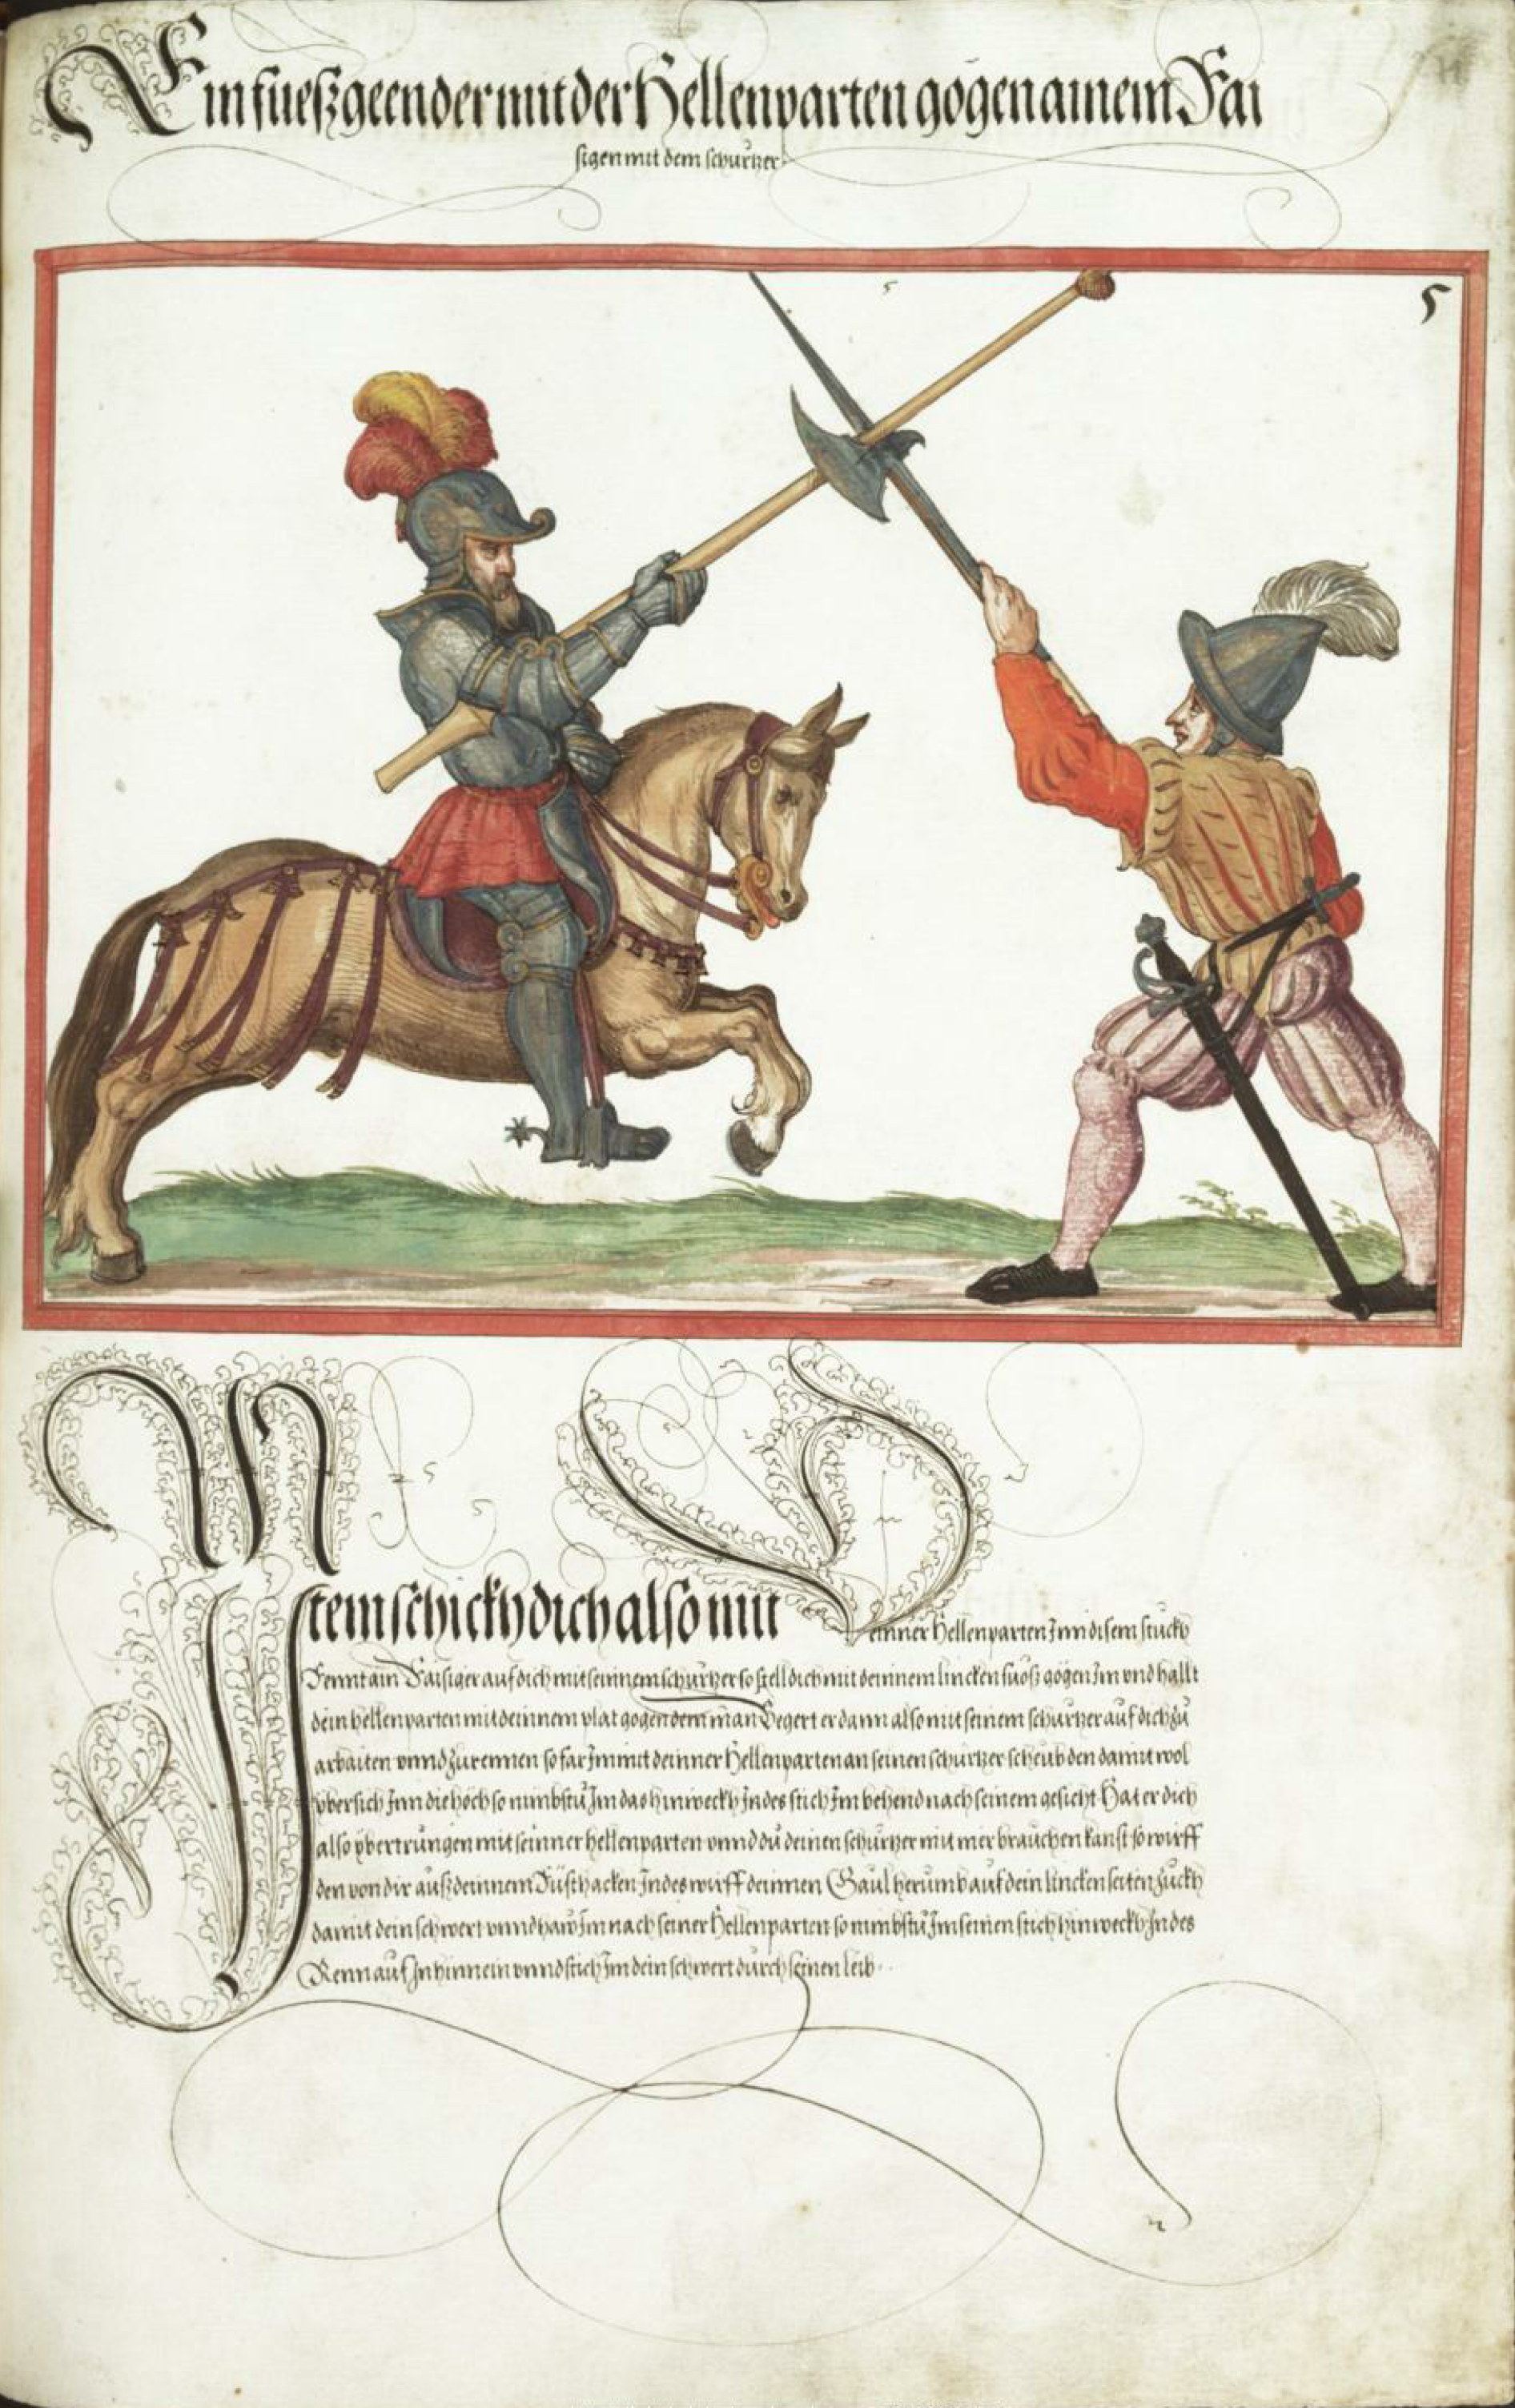 Ein fuesz geender mit der Hellenparten gögen ainem Rai
sigen mit dem schurtzer
5
5
Item schickh dich also mit deinner Hellenparten Inn disem stuckh
Rennt ain Raisiger auf dich mit seinnem schurtzer so stell dich mit deinnem lincken fuosz gögen Im vnd hallt
dein hellenparten mit deinnem plat gogen dem man Begert er dann also mit seinem schurtzer auf dich zu
arbaiten vnnd zu rennen so far Im mit deinner Hellenparten an seinen schurtzer scheub den damit wol
vbersich Inn die höch so nimbstu Im das hinweckh Indes stich Im behend nach seinem gesicht Hat er dich
also vbertrungen mit seinner hellenparten vnnd du deinen schurtzer nit mer brauchen kanst so wirff
den von dir ausz deinnem Rüsthacken Indes wirff deinnen Gaul herumb auf dein lincken seiten zuckh
damit dein schwert vnnd haw Im nach seiner Hellenparten so nimbstu Im seinen stich hinweckh Indes
Renn auf In hinnein vnnd stich Im dein schwert durch seinen leib